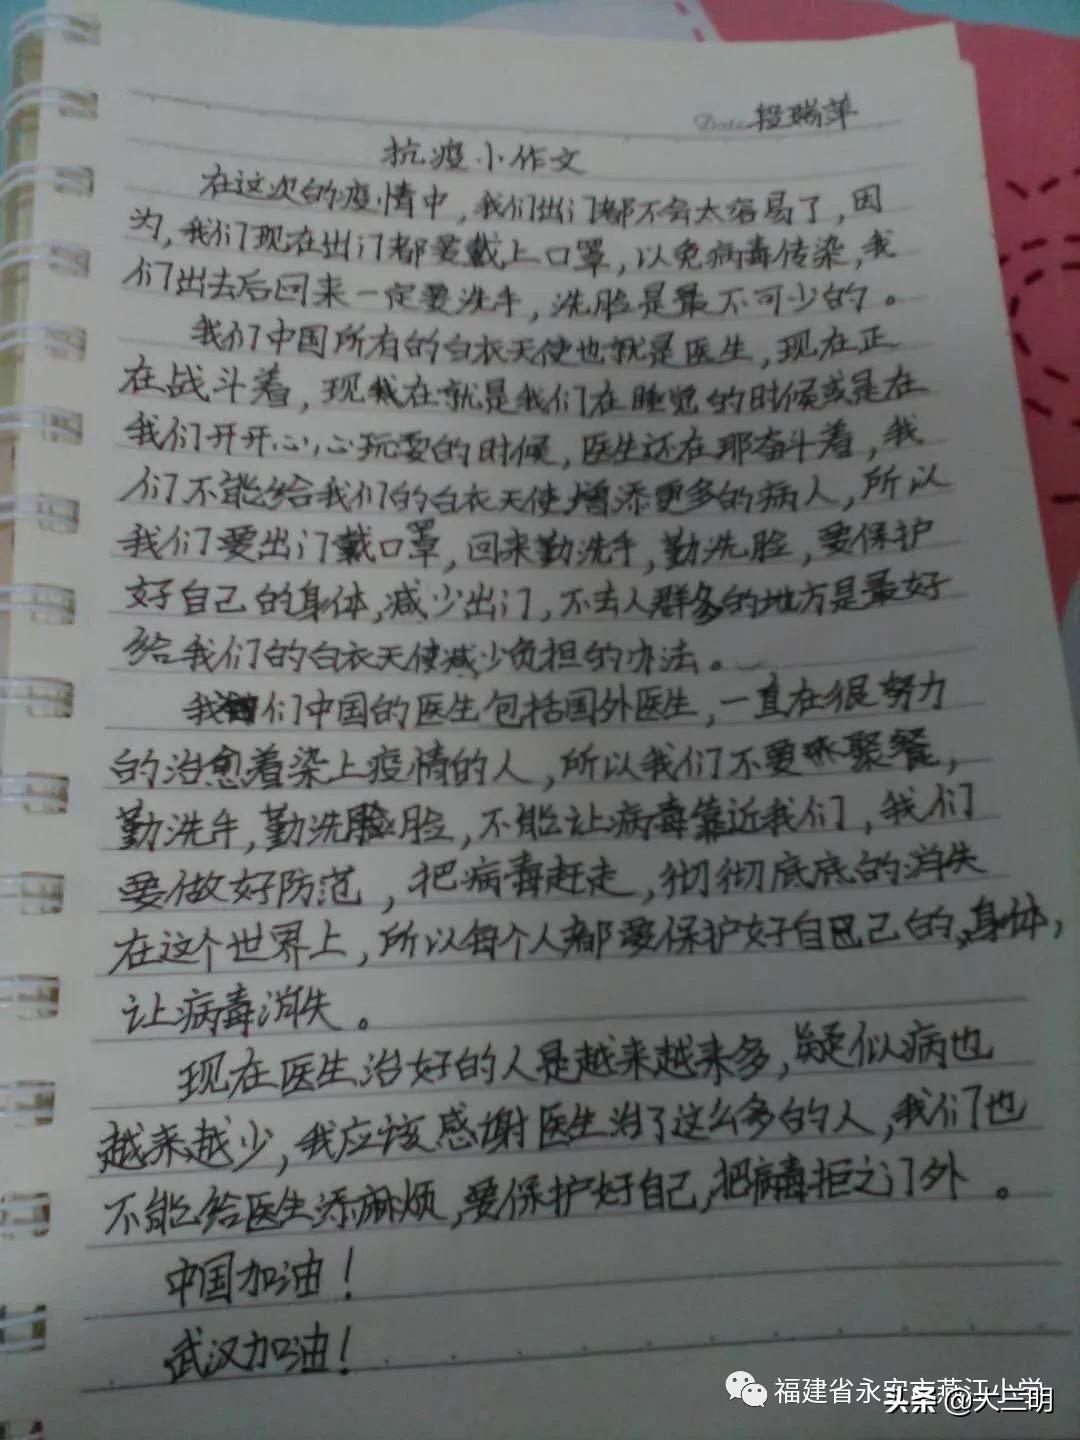 Date 段瑞萍
抗疫小作文
在这次的疫情中，我们出门都不会太容易了，因
为，我们现在出门都要戴上口罩，以免病毒传染，我
们出去后回来一定要洗手，洗脸是最不可少的。
我们中国所有的白衣天使也就是医生，现在正
在战斗着，现在就是我们在睡觉的时候或是在
我们开开心心玩耍的时候，医生还在那奋斗着，我
们不能给我们的白衣天使增添更多的病人，所以
我们要出门戴口罩，回来勤洗手，勤洗脸，要保护
好自己的身体，减少出门，不去人群多的地方是最好
给我们的白衣天使减少负担的办法。
我们中国的医生包括国外医生，一直在很努力
的治愈着染上疫情的人，所以我们不要聚餐，
勤洗手，勤洗脸，不能让病毒靠近我们，我们
要做好防范，把病毒赶走，彻彻底底的消失
在这个世界上，所以每个人都要保护好自己的身体，
让病毒消失。
现在医生治好的人是越来越来多，疑似病也
越来越少，我应该感谢医生治了这么多的人，我们也
不能给医生添麻烦，要保护好自己，把病毒拒之门外。
中国加油！
武汉加油！
福建省永安市燕江小学
头条@大三明